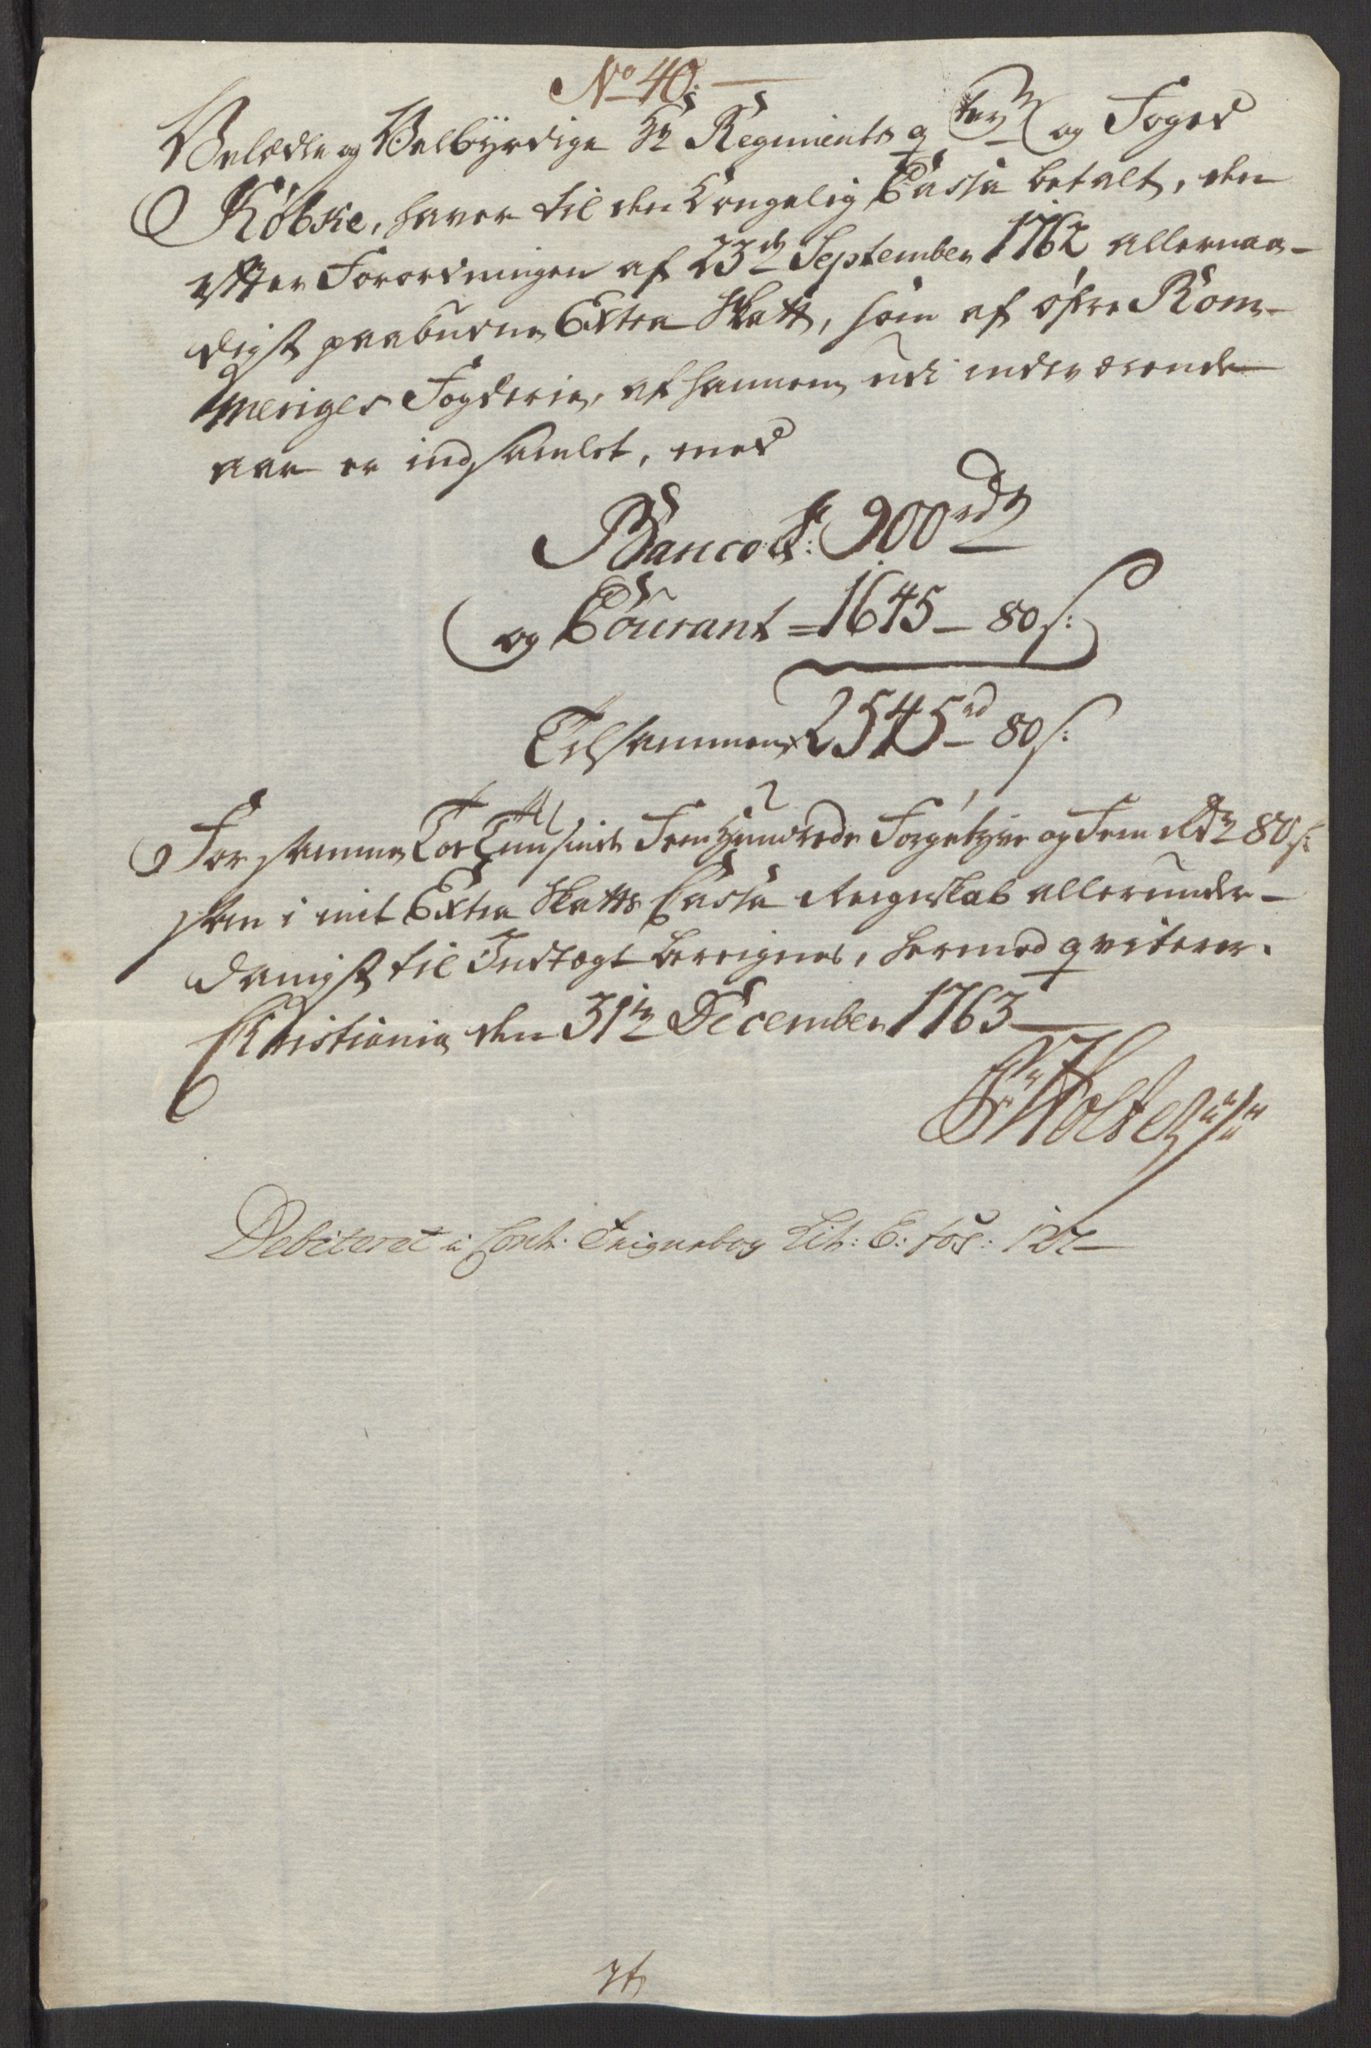 No 40.
Velædle og Velbyrdige Hr Regiments qvterM og Foged
Røbske, haver til den Kongelig Cassa betalt, den
efter Forordningen af 23de September 1762 allernaa-
digst paabudne Extra Skatt, som af øfre Rom-
meriges Fogderie, af hannem udi indeværende
aar er indsamlet, med
Banco S: 900 rdr
og Courant = 1645 - 80 s:
Tilsammen 2545 rd 80 s:
For samme Toe Tuusinde Fem Hundrede Forgetyve og Fem Rdr 80 s:
som i mit Extra Skatts Cassa Reignskab allerunder-
danigst til Indtægt bereignes, hermed qviterer.
Christiania den 31te December 1763
Holte
Debiteret i Cont: Reignebog Lit: E: fol: